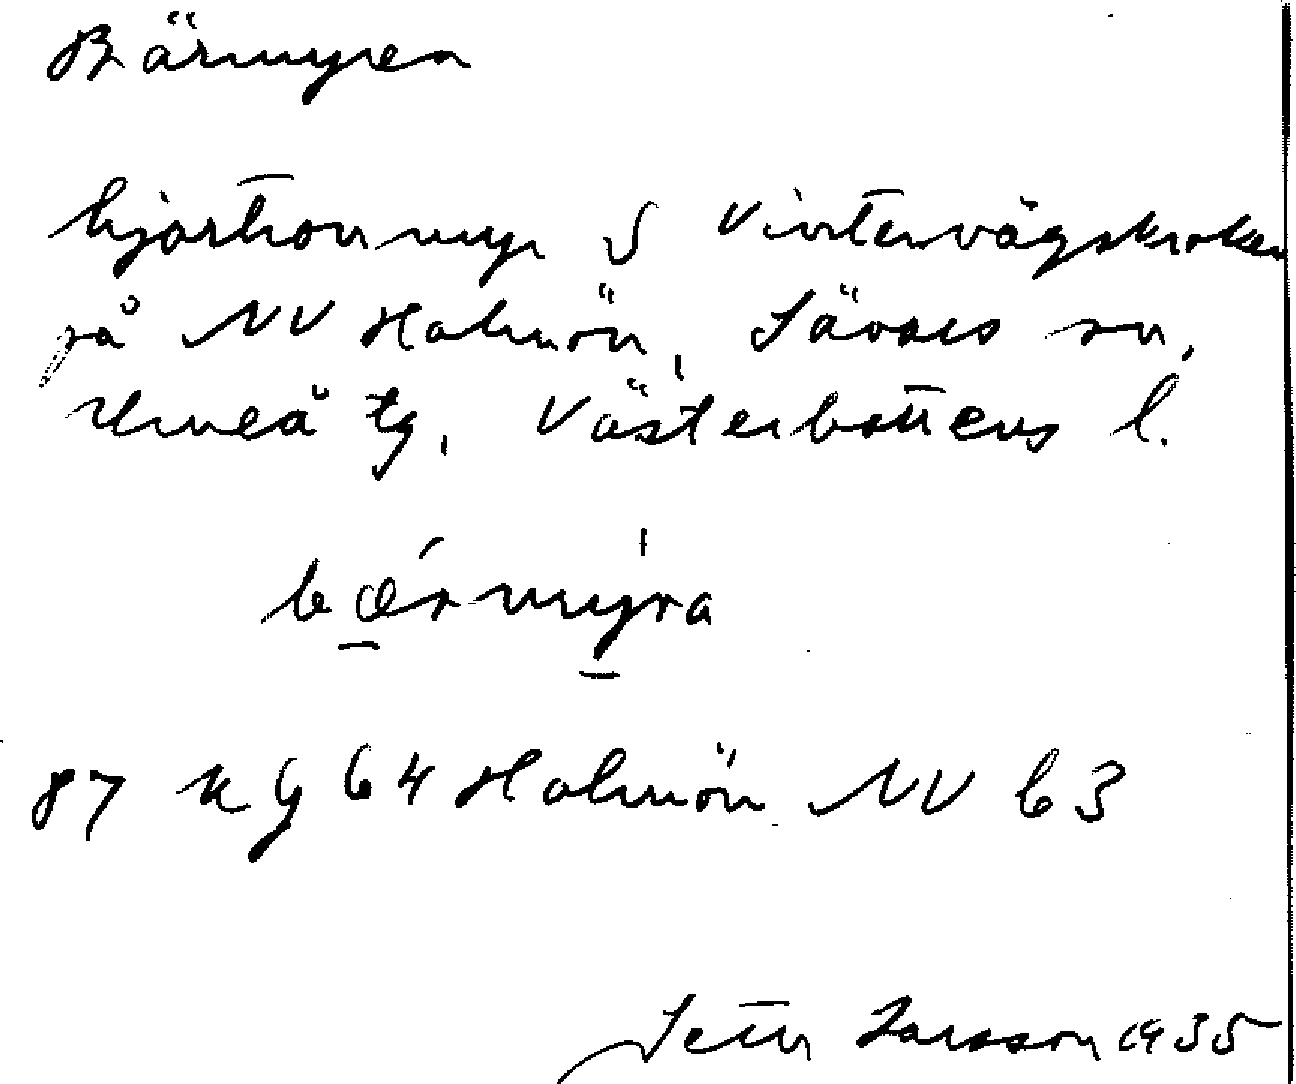 Bärmyren
hjortronmyr S Vintervägskroken
på NV Holmön, Sävars sn,
Umeå tg, Västerbottens l.
bǽrmyra
87 64 Holmön NV b3
Larsson 1935